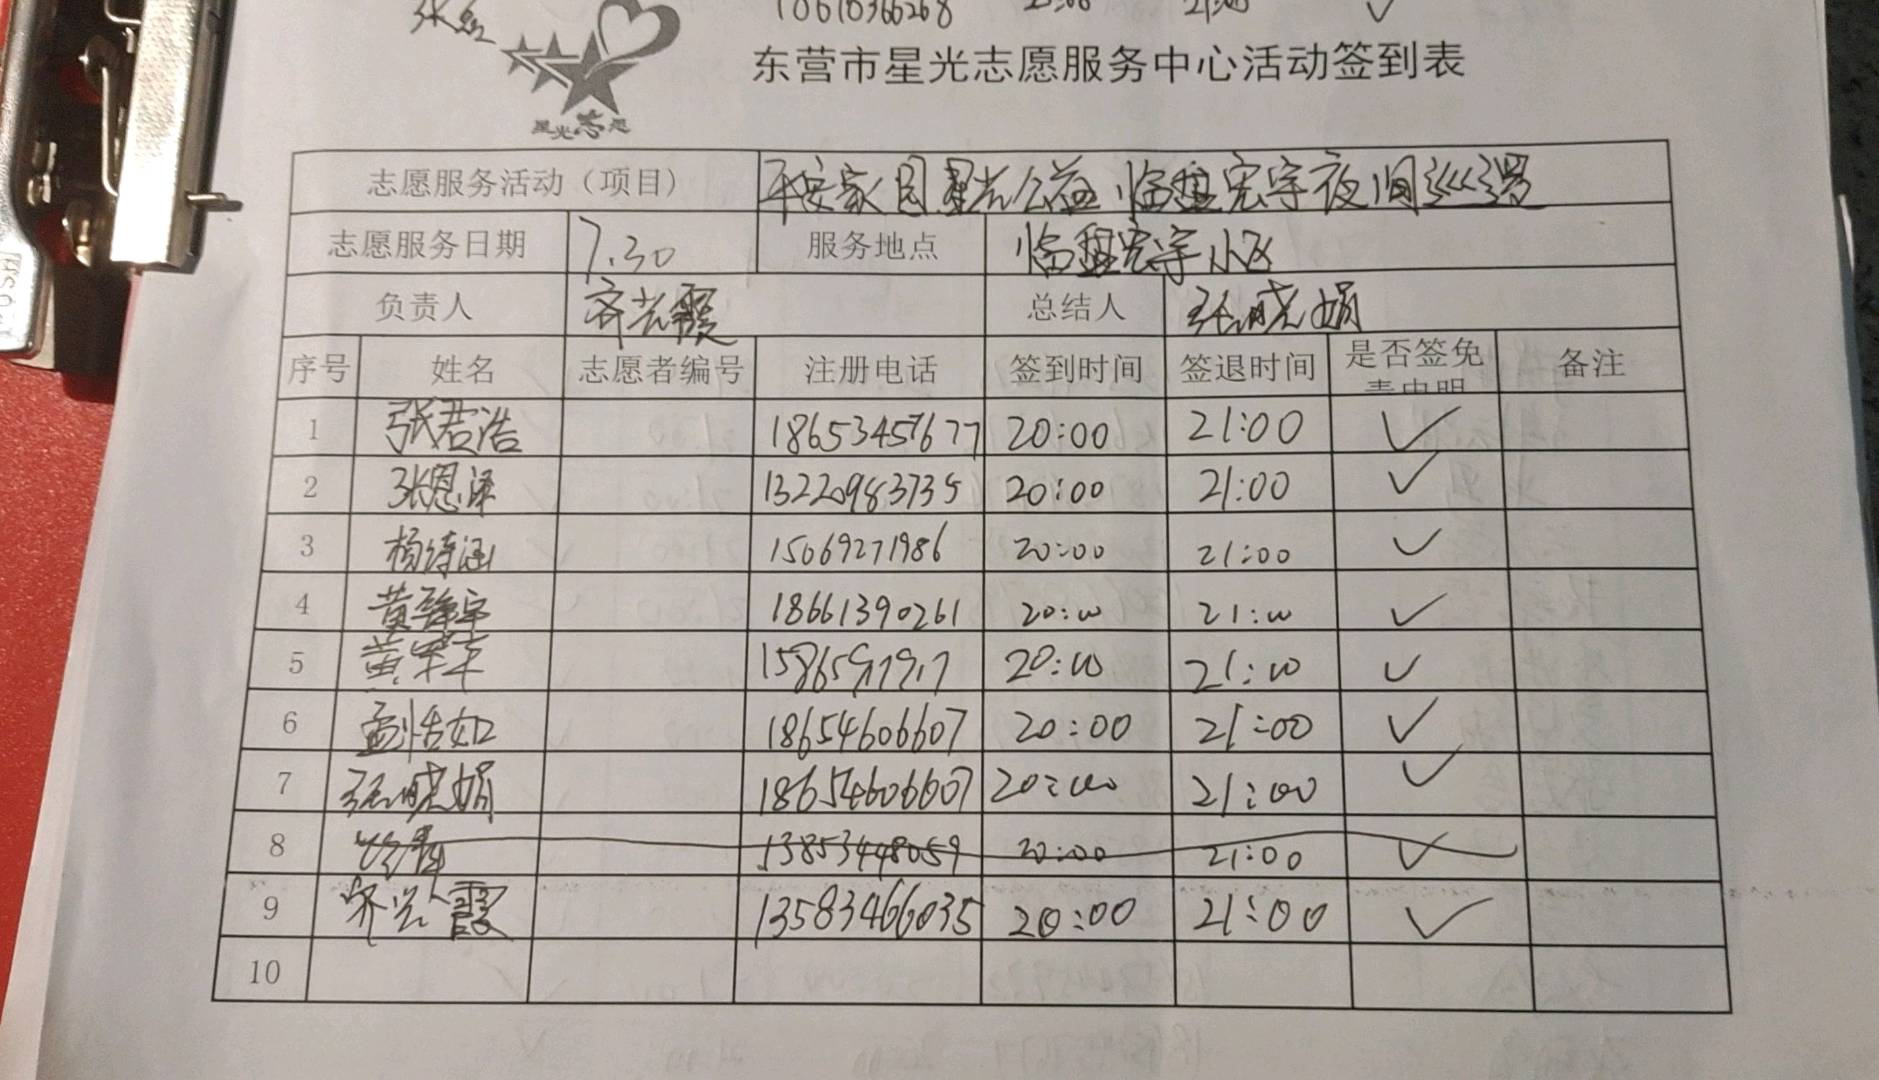 张
东营市星光志愿服务中心活动签到表
星光志愿
志愿服务活动（项目） 平安家园星光公益 临盘宏宇夜间巡逻
志愿服务日期 7.30 服务地点 临盘宏宇小区
负责人 齐兴霞 总结人 张晓娟
序号 姓名 志愿者编号 注册电话 签到时间 签退时间 是否签免责申明 备注
1 张君浩 18653457677 20:00 21:00 ✓
2 张恩泽 13220983735 20:00 21:00 ✓
3 杨诗涵 15069271986 20:00 21:00 ✓
4 黄 宇 18661390261 20:00 21:00 ✓
5 黄军 20:00 21:00 ✓
6 孟恬如 18654606607 20:00 21:00 ✓
7 张晓娟 18654606607 20:00 21:00 ✓
8 13853448059 20:00 21:00 ✓
9 齐兴霞 13583466035 20:00 21:00 ✓
10